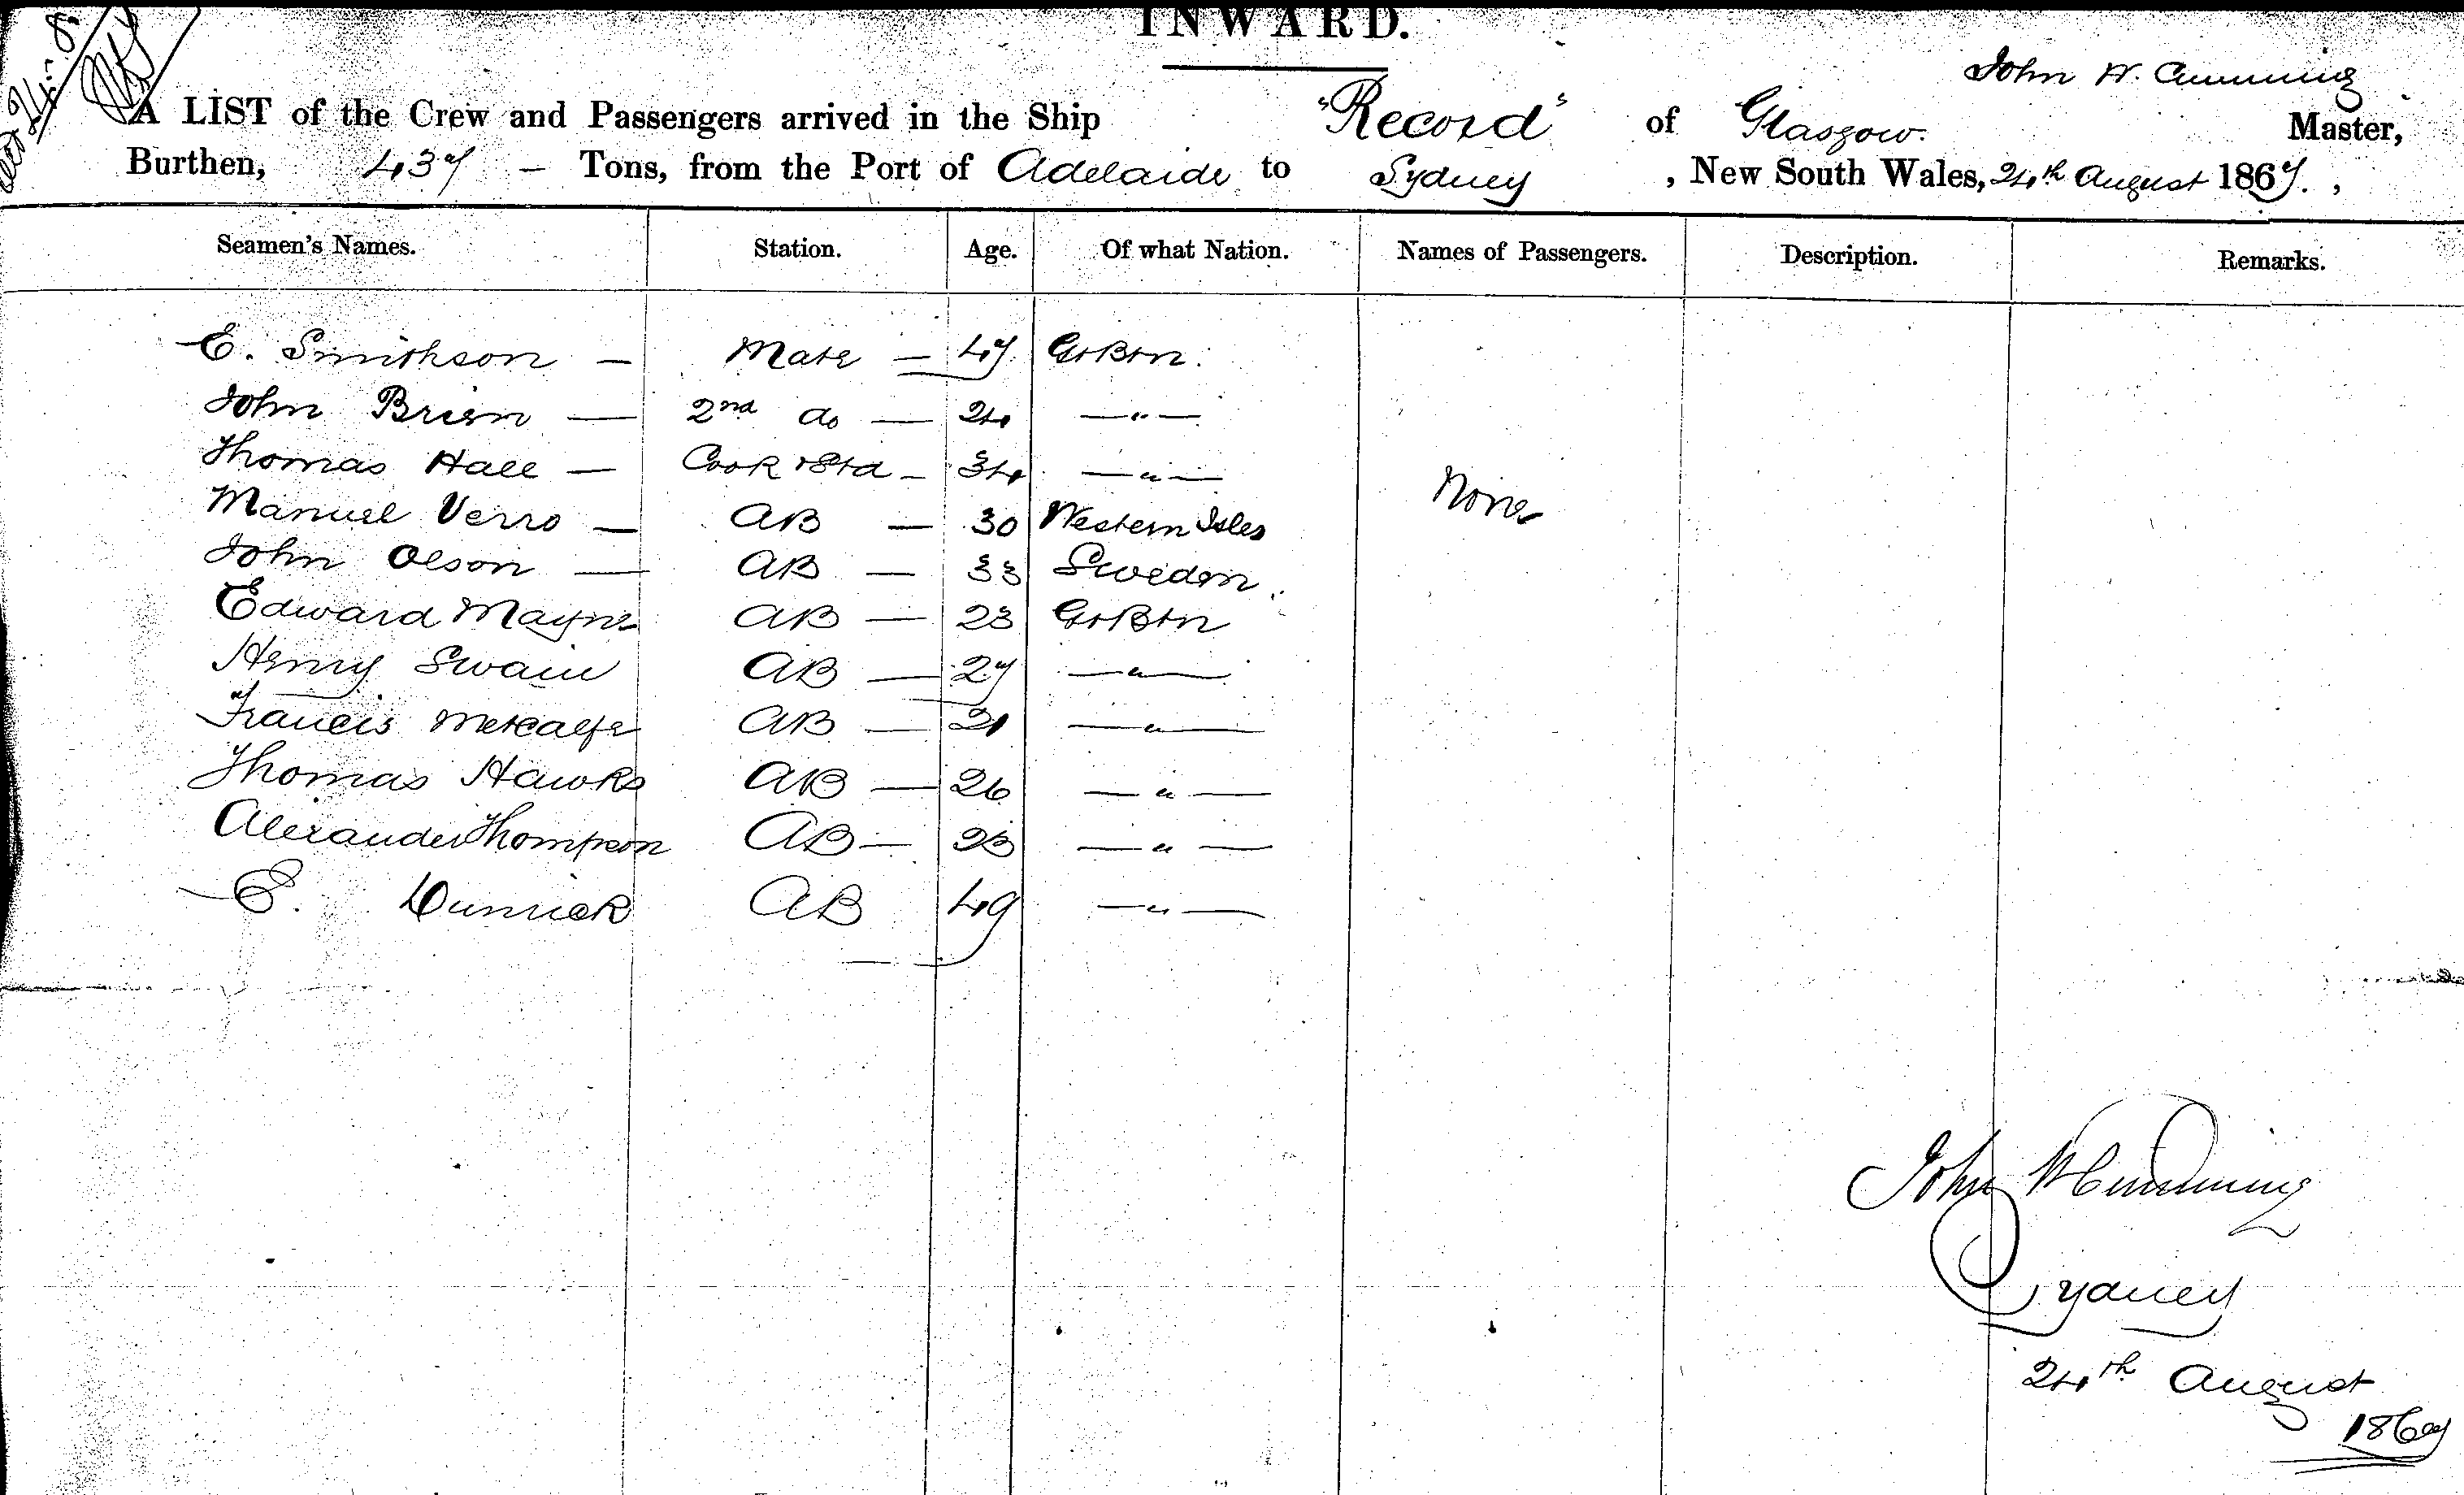 INWARD.
John W. Cumming
A LIST of the Crew and Passengers arrived in the Ship "Record" of Glasgow. Master,
Burthen, 437 - Tons, from the Port of Adelaide to Sydney, New South Wales, 24th August 1867.,
Seamen's Names. Station. Age. Of what Nation. Names of Passengers. Description. Remarks.
E. Smithson — Mate — 47 Gt Btn.
John Brien — 2nd do — 24 — " —
Thomas Hall — Cook & Std — 34 — " —
None
Manuel Verro — AB — 30 Western Isles
John Olson — AB — 33 Sweden.
Edward Mayne AB — 23 Gt Btn
Henry Swain AB — 27 — " —
Francis Metcalfe AB — 21 — " —
Thomas Hawks AB — 26 — " —
Alexander Thompson AB — 23 — " —
E. AB 49 — " —
John W Cumming
Sydney
24th August
1867